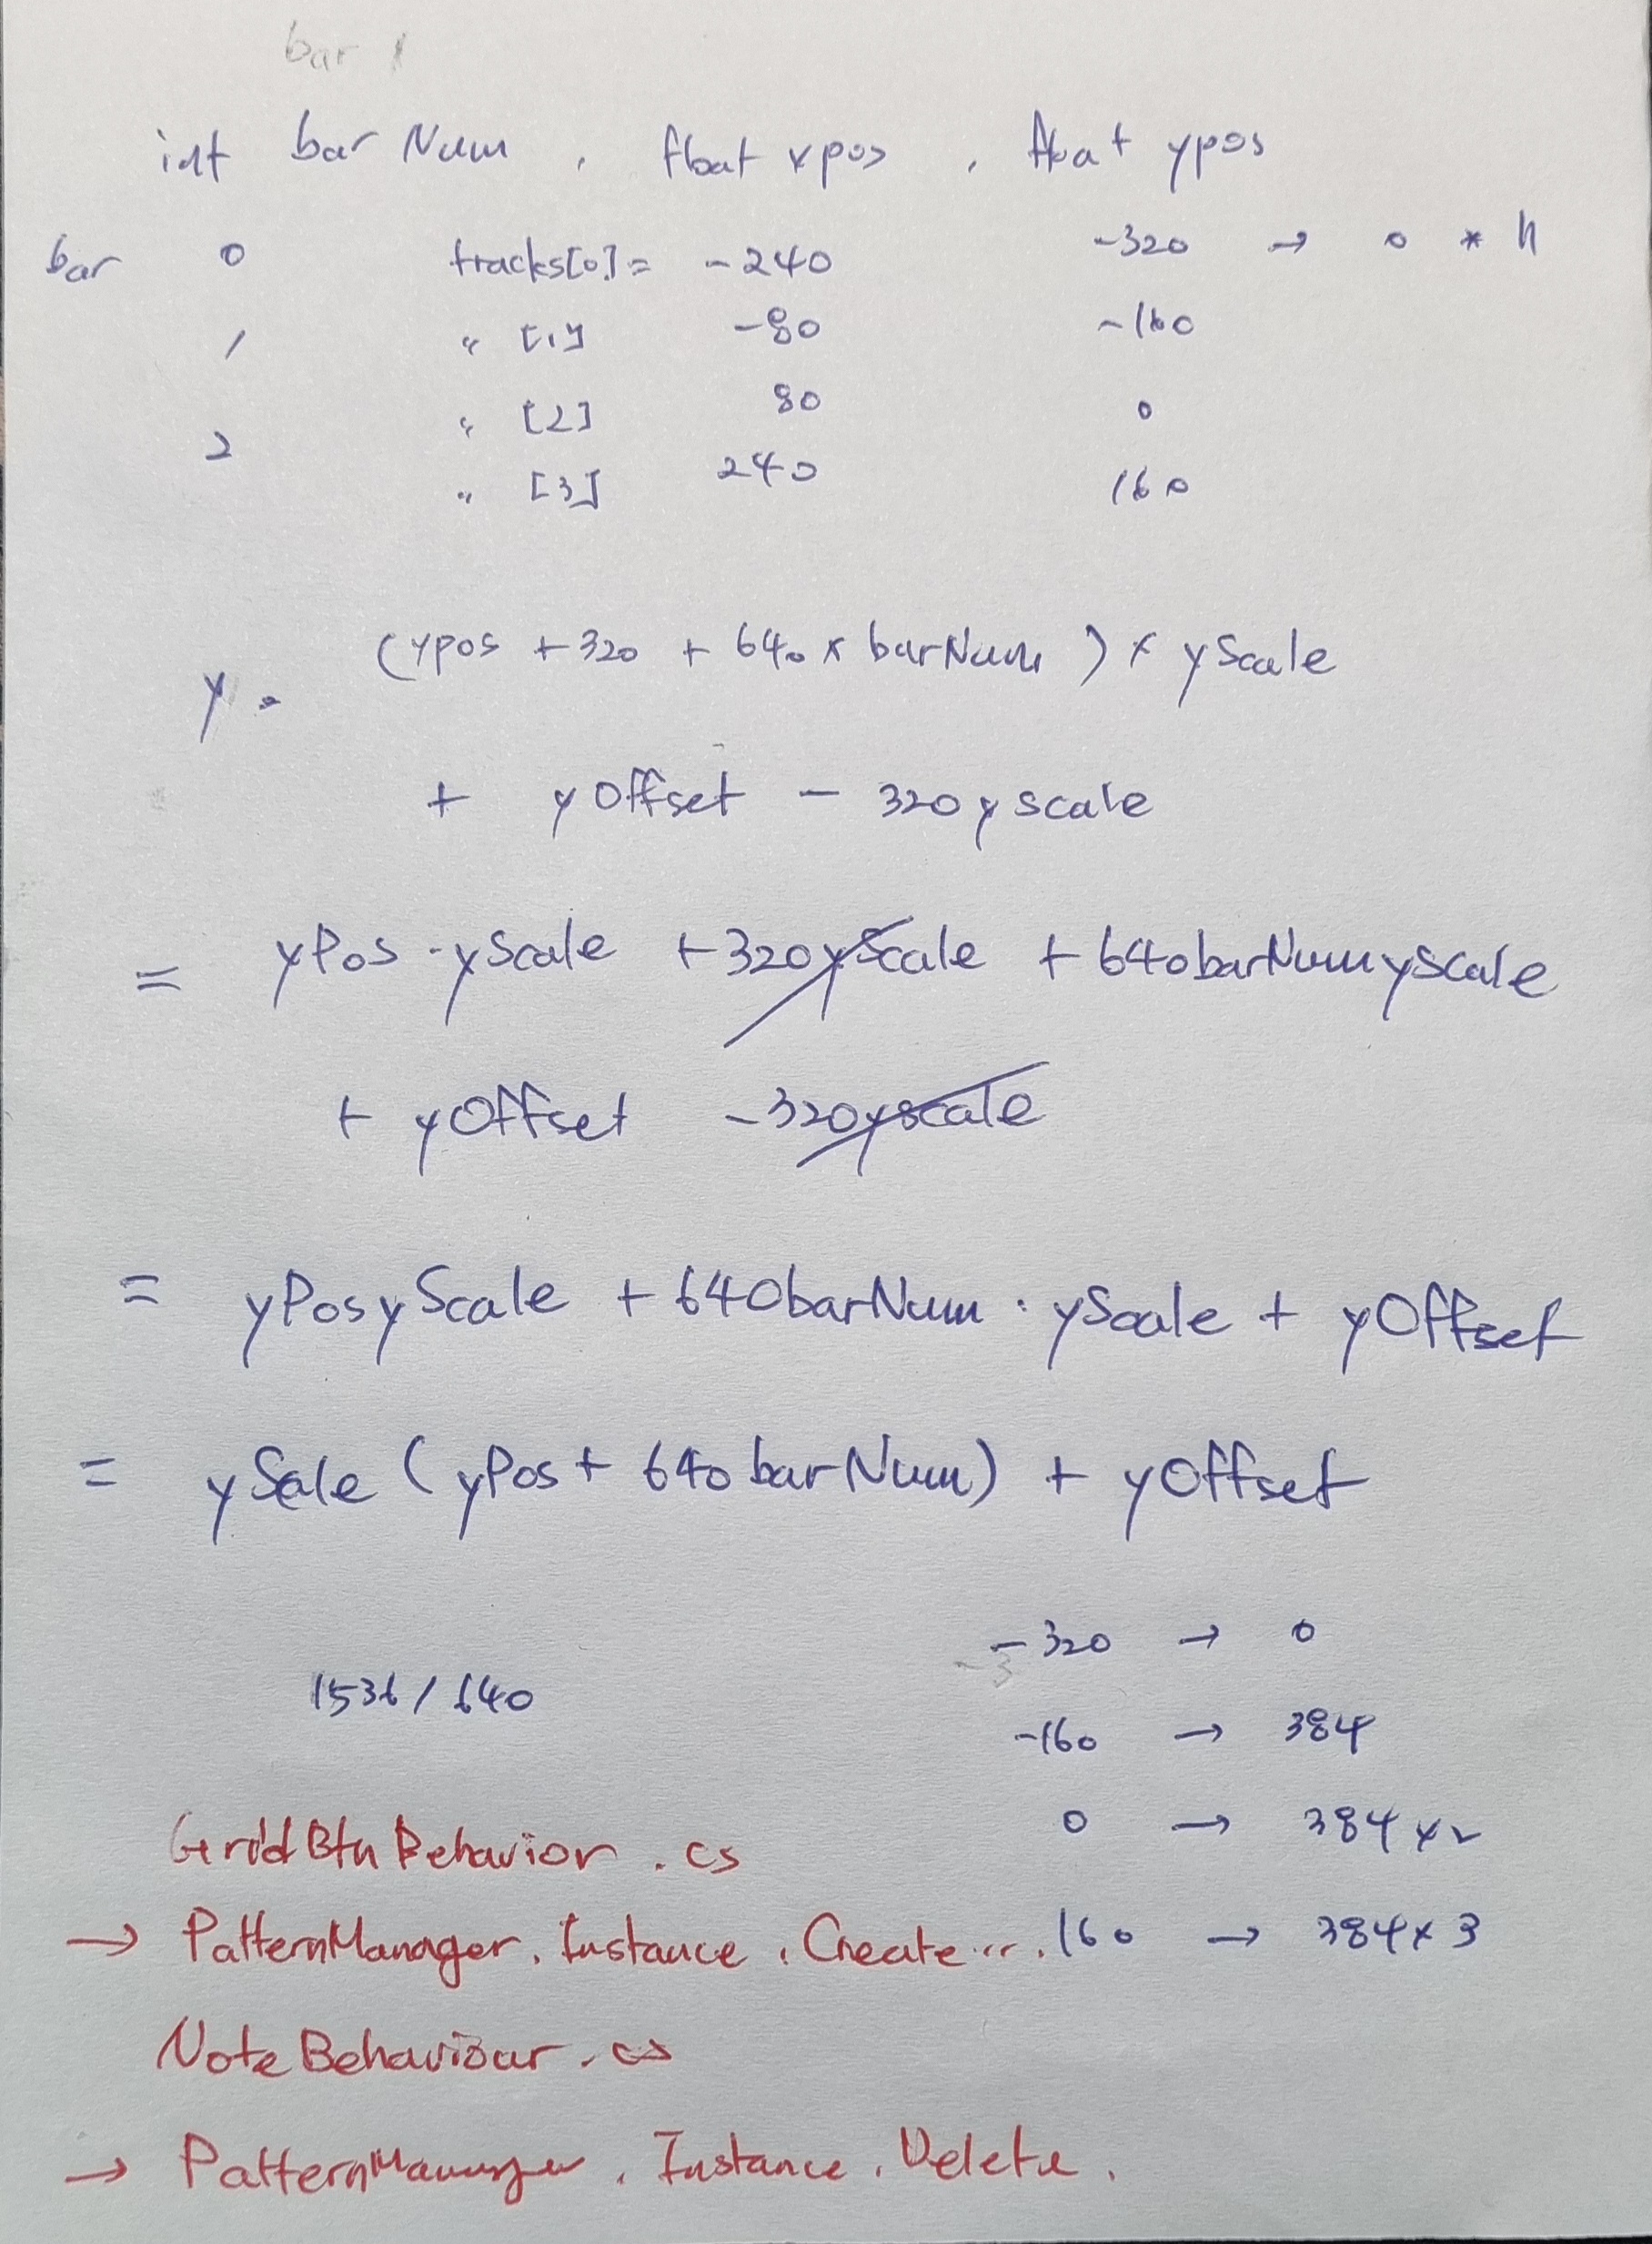 bar 1
int bar Num , float xpos , float ypos
bar 0 tracks[0] = -240 -320 → 0 * h
1 " [1] -80 -160
2 " [2] 80 0
" [3] 240 160
y = (ypos + 320 + 640 x barNum ) x yScale
+ yOffset - 320yscale
= yPos · yScale +320yScale + 640barNumyscale
+ yOffset -320yscale
= yPosyScale + 640barNum · yScale + yOffset
= ySale (yPos + 640barNum) + yOffset
-320 → 0
-3
1536 / 640
-160 → 384
0 → 384 x 2
GridBtnBehavior . cs
→ PatternManager . Instance . Create ... .
160 → 384 x 3
NoteBehaviour . cs
→ PatternManager . Instance . Delete .